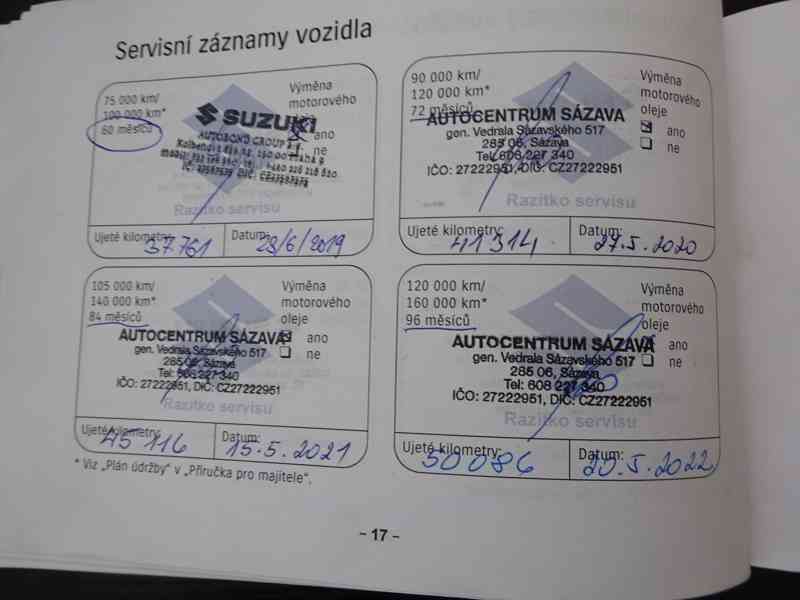 Servisní záznamy vozidla
75 000 km/
100 000 km*
60 měsíců
Výměna
motorového
SUZUKI
AUTOBOND GROUP a.s.
ano
ne
Razítko servisu
Ujeté kilometry: 37.761
Datum: 28/6/2019
90 000 km/
120 000 km*
72 měsíců
Výměna
motorového
oleje
AUTOCENTRUM SÁZAVA
gen. Vedrala Sázavského 517
285 06, Sázava
Tel: 608 227 340
IČO: 27222951, DIČ: CZ27222951
ano
ne
Razítko servisu
Ujeté kilometry: 41 314
Datum: 27.5.2020
105 000 km/
140 000 km*
84 měsíců
Výměna
motorového
oleje
AUTOCENTRUM SÁZAVA
gen. Vedrala Sázavského 517
285 06, Sázava
Tel: 608 227 340
IČO: 27222951, DIČ: CZ27222951
ano
ne
Razítko servisu
Ujeté kilometry: 45 116
Datum: 15.5.2021
120 000 km/
160 000 km*
96 měsíců
Výměna
motorového
oleje
AUTOCENTRUM SÁZAVA
gen. Vedrala Sázavského 517
285 06, Sázava
Tel: 608 227 340
IČO: 27222951, DIČ: CZ27222951
ano
ne
Razítko servisu
Ujeté kilometry: 50086
Datum: 20.5.2022
* Viz „Plán údržby" v „Příručka pro majitele".
- 17 -